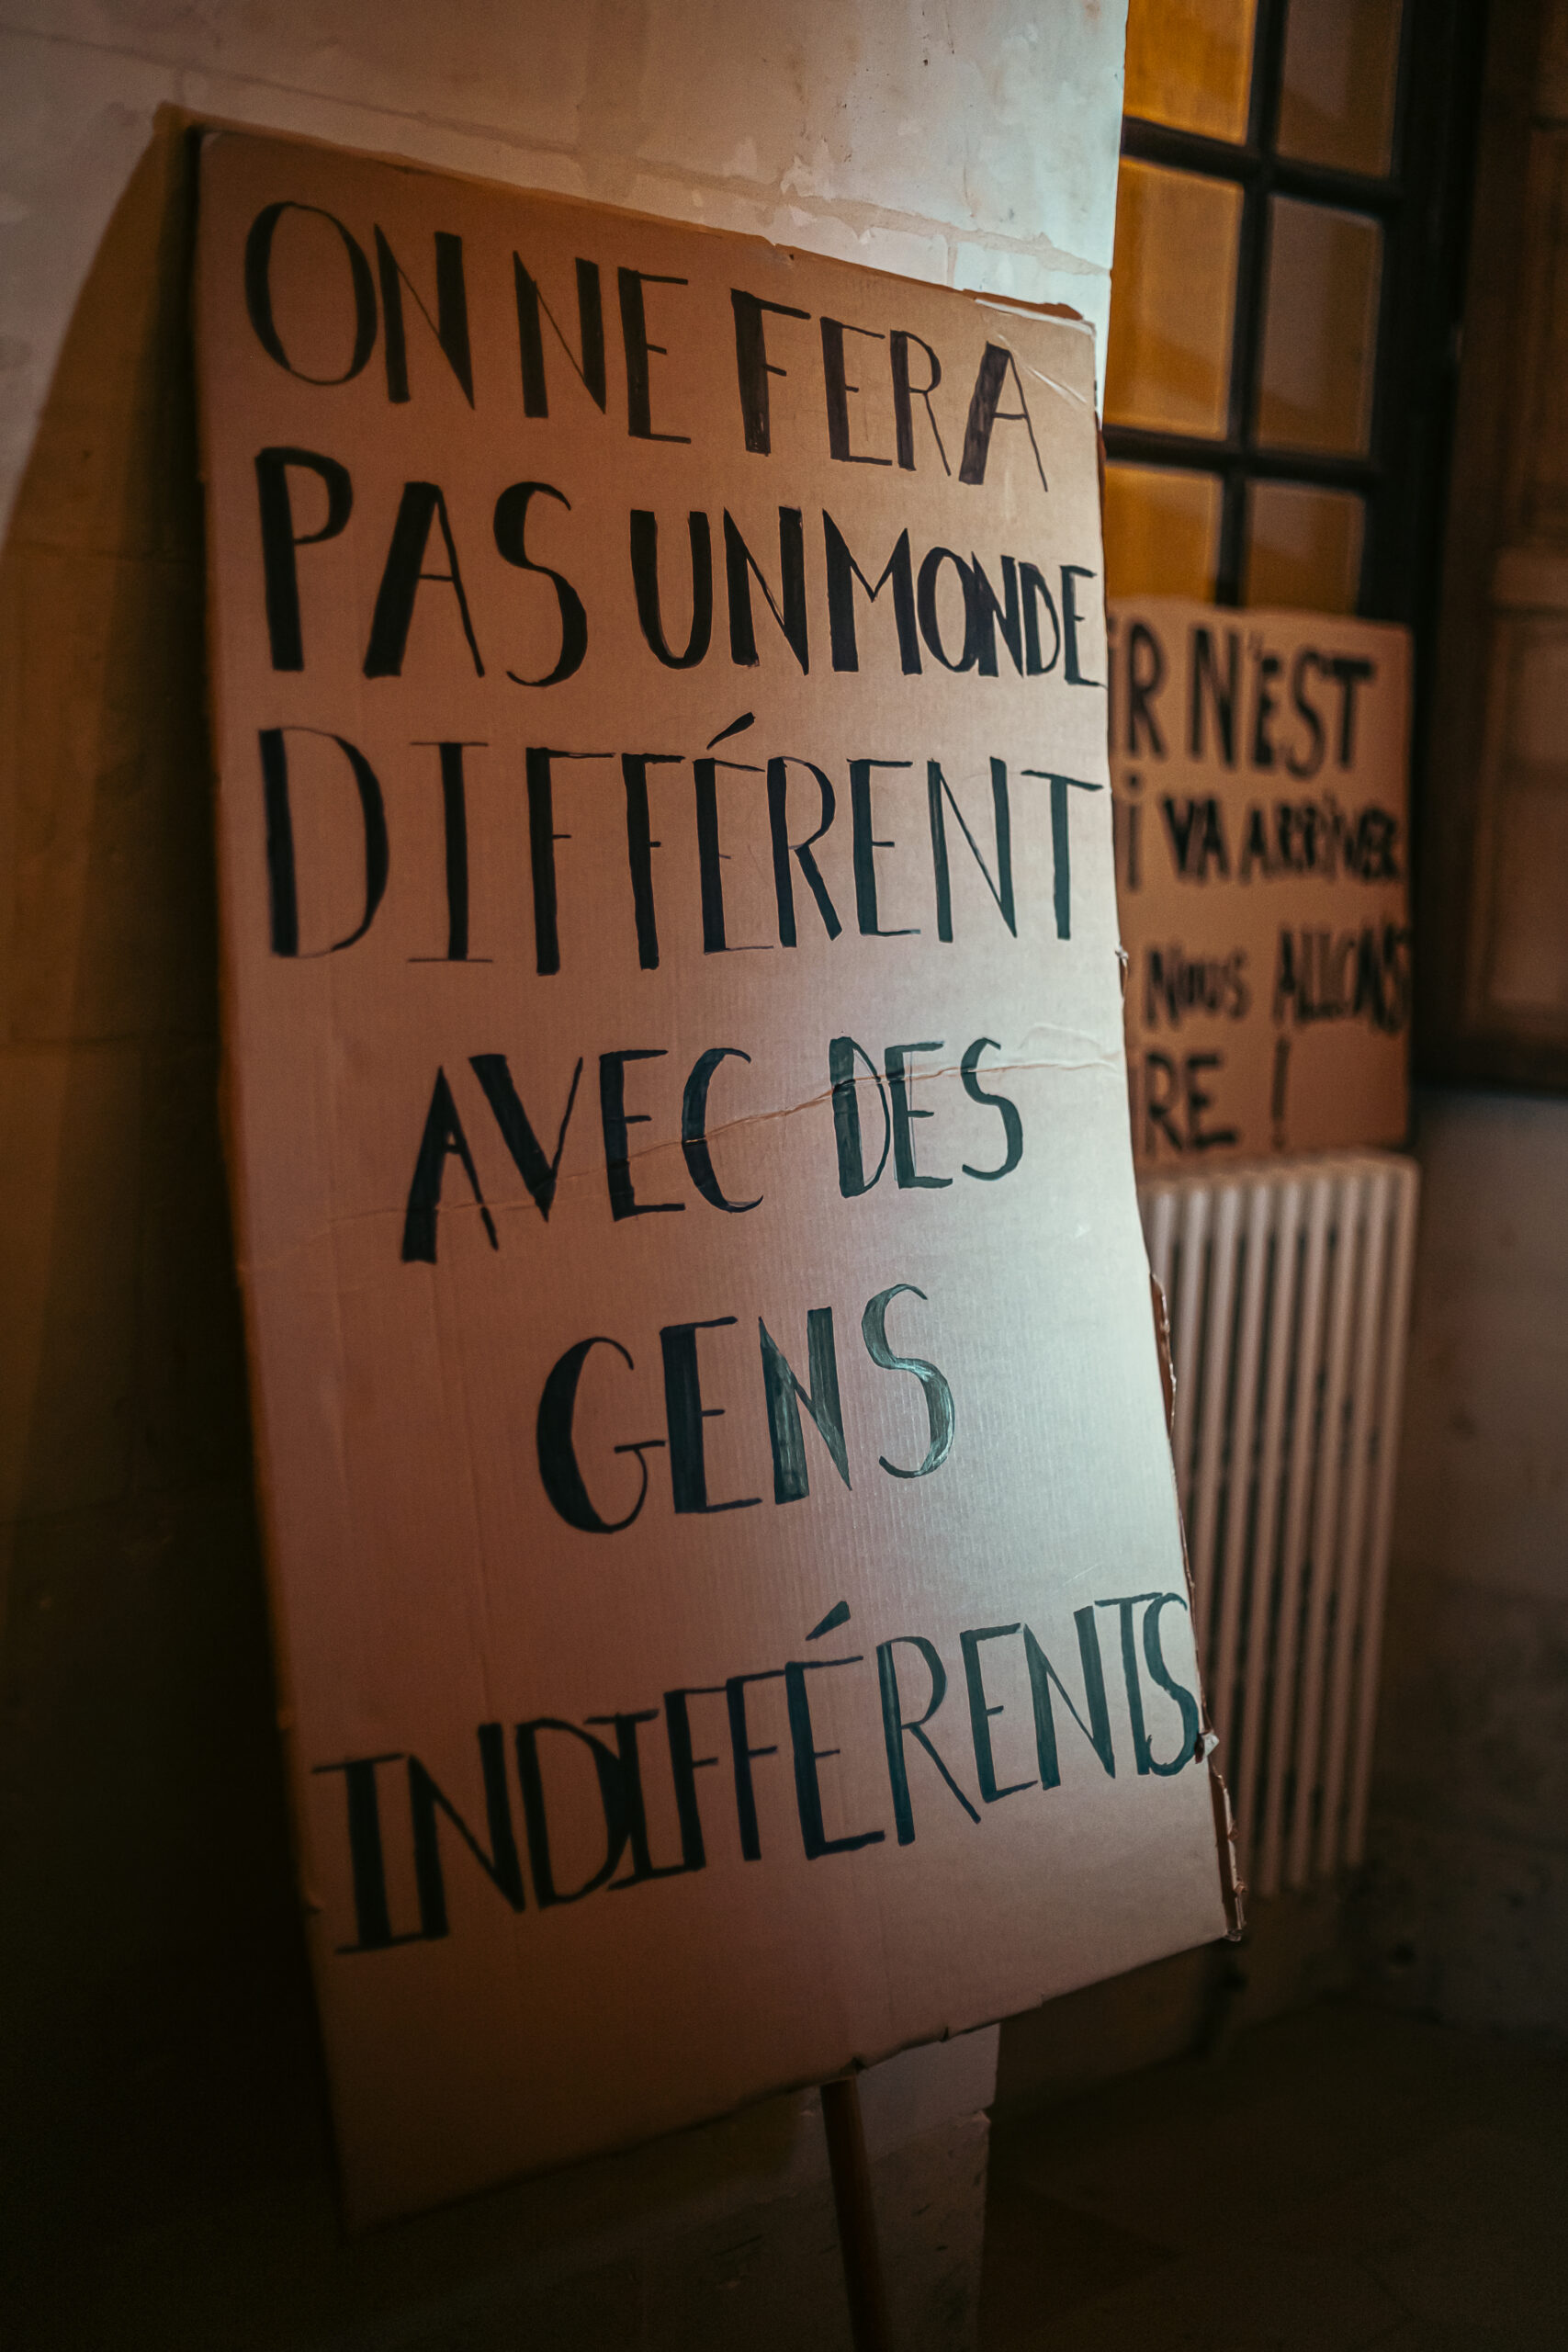 ON NE FERA
PAS UN MONDE
DIFFÉRENT
AVEC DES
GENS
INDIFFÉRENTS
R N'EST
i VA ARRiVER
NOUS ALLONS
RE !